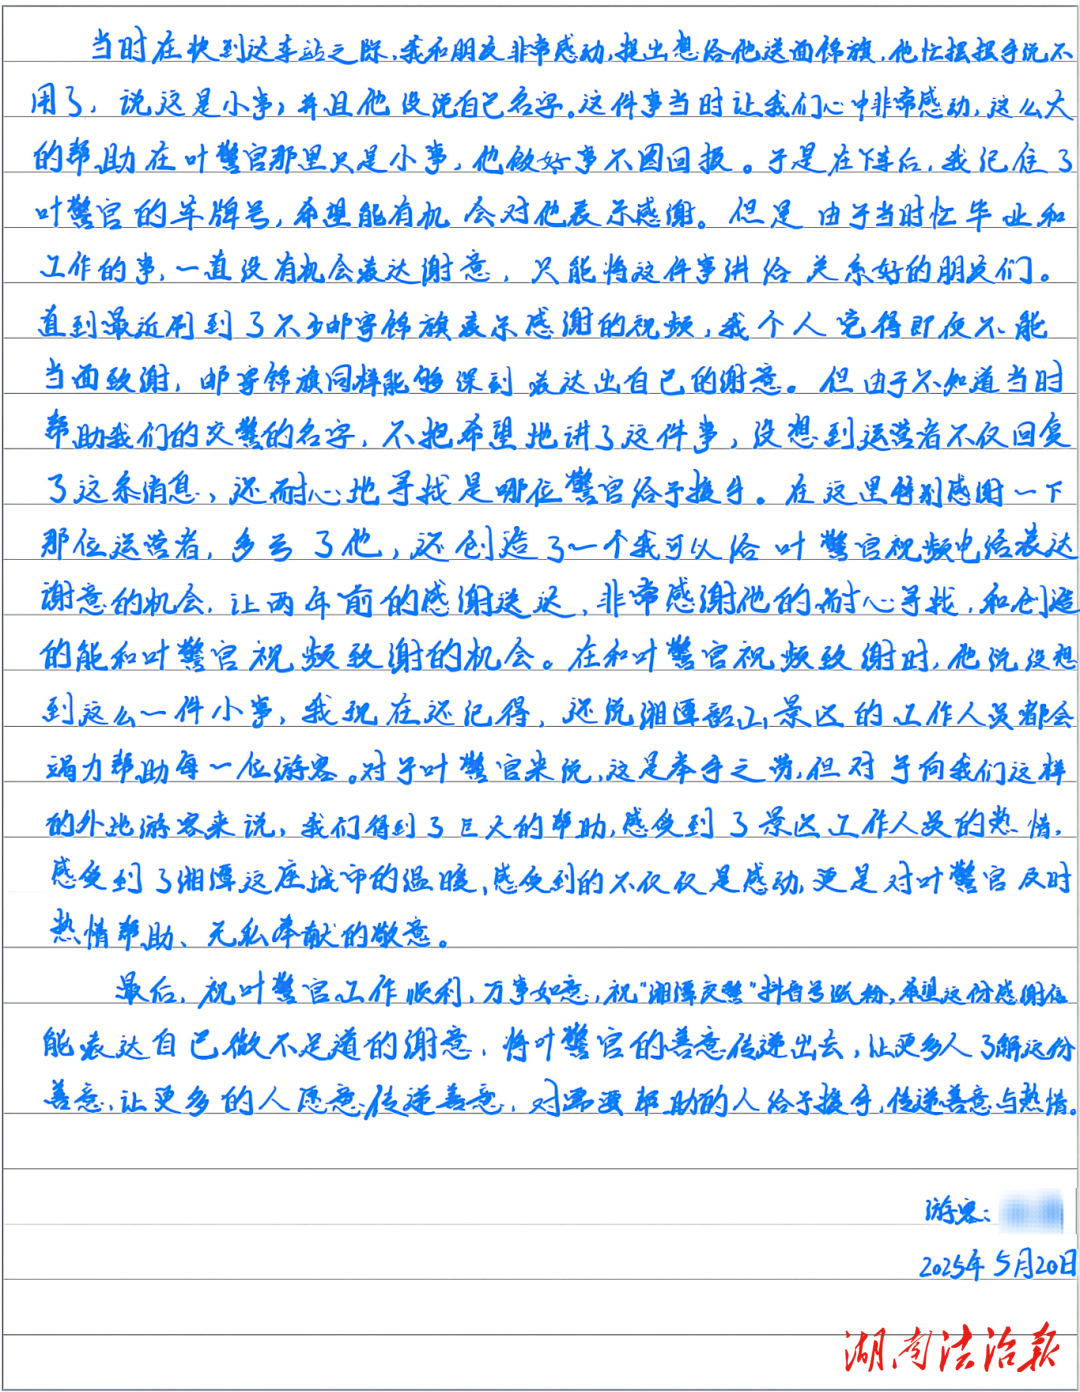 当时在快到达车站之际,我和朋友非常感动,提出想给他送面锦旗,他忙摆摆手说不
用了，说这是小事,并且他没说自己名字。这件事当时让我们心中非常感动,这么大
的帮助在叶警官那里只是小事,他做好事不图回报。于是在下车后,我记住了
叶警官的车牌号,希望能有机会对他表示感谢。但是由于当时忙毕业和
工作的事,一直没有机会表达谢意，只能将这件事讲给关系好的朋友们。
直到最近刷到了不少邮寄锦旗表示感谢的视频,我个人觉得即使不能
当面致谢,邮寄锦旗同样能够深刻表达出自己的谢意。但由于不知道当时
帮助我们的交警的名字,不抱希望地讲了这件事,没想到运营者不仅回复
了这条消息,还耐心地寻找是哪位警官给予援手。在这里特别感谢一下
那位运营者,多亏了他,还创造了一个我可以给叶警官视频电话表达
谢意的机会,让两年前的感谢送达,非常感谢他的耐心寻找,和创造
的能和叶警官视频致谢的机会。在和叶警官视频致谢时,他说没想
到这么一件小事,我现在还记得,还说湘潭韶山景区的工作人员都会
竭力帮助每一位游客。对于叶警官来说,这是举手之劳,但对于向我们这样
的外地游客来说,我们得到了巨大的帮助,感受到了景区工作人员的热情,
感受到了湘潭这座城市的温暖,感受到的不仅仅是感动,更是对叶警官及时
热情帮助、无私奉献的敬意。
最后,祝叶警官工作顺利,万事如意,祝“湘潭交警”抖音号涨粉,希望这份感谢信
能表达自己微不足道的谢意,将叶警官的善意传递出去,让更多人了解这份
善意,让更多的人愿意传递善意,对需要帮助的人给予援手,传递善意与热情。
游客:
2025年5月20日
湖南法治报